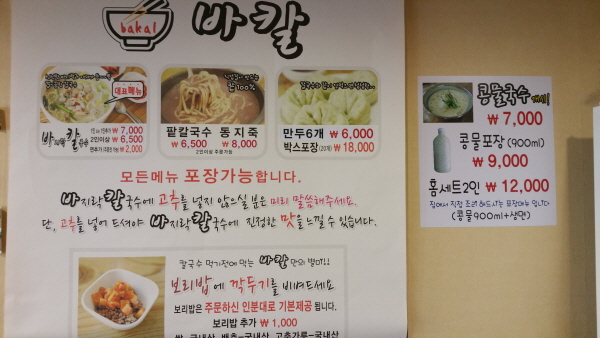 bakal
바칼
대표메뉴
바지락칼국수
₩ 7,000
2인이상 ₩ 6,500
₩ 2,000
100%
팥칼국수 동지죽
₩ 6,500 ₩ 8,000
2인이상 주문가능
만두6개 ₩ 6,000
박스포장(20개) ₩ 18,000
모든메뉴 포장가능합니다.
바지락칼국수에 고추를 넣지 않으실 분은 미리 말씀해주세요.
단, 고추를 넣어 드셔야 바지락칼국수에 진정한 맛을 느낄 수 있습니다.
칼국수 먹기전에 먹는 바칼 만의 별미!!
보리밥에 깍두기를 비벼드세요
보리밥은 주문하신 인분대로 기본제공 됩니다.
보리밥 추가 ₩ 1,000
쌀-국내산 배추-국내산 고추가루-국내산
콩물국수 개시!
₩ 7,000
콩물포장(900ml)
₩ 9,000
홈세트2인 ₩ 12,000
집에서 직접 조리 해드시는 포장메뉴 입니다
(콩물900ml+생면)